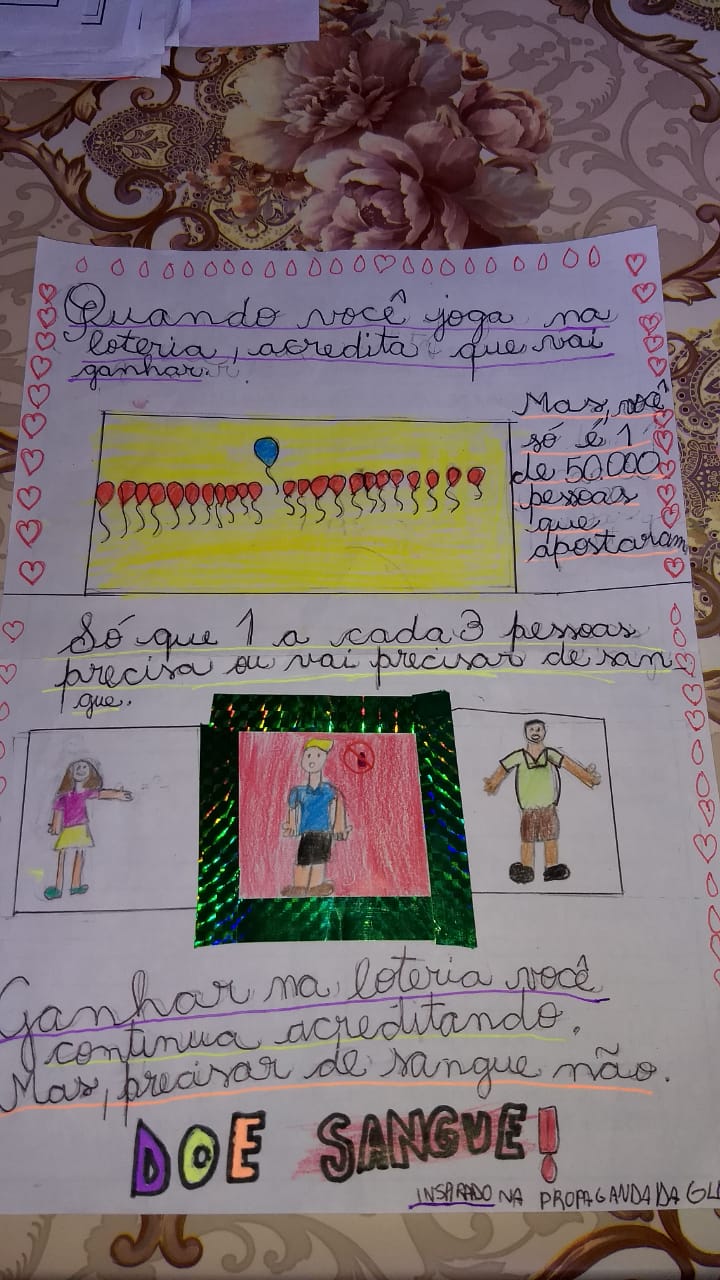 Quando você joga na
loteria, acredita que vai
ganhar.
Mas, você
só é 1
de 50.000
pessoas
que
apostaram
Só que 1 a cada 3 pessoas
precisa ou vai precisar de san
gue.
Ganhar na loteria você
continua acreditando.
Mas, precisar de sangue não.
DOE SANGUE!
INSPIRADO NA PROPAGANDA DA